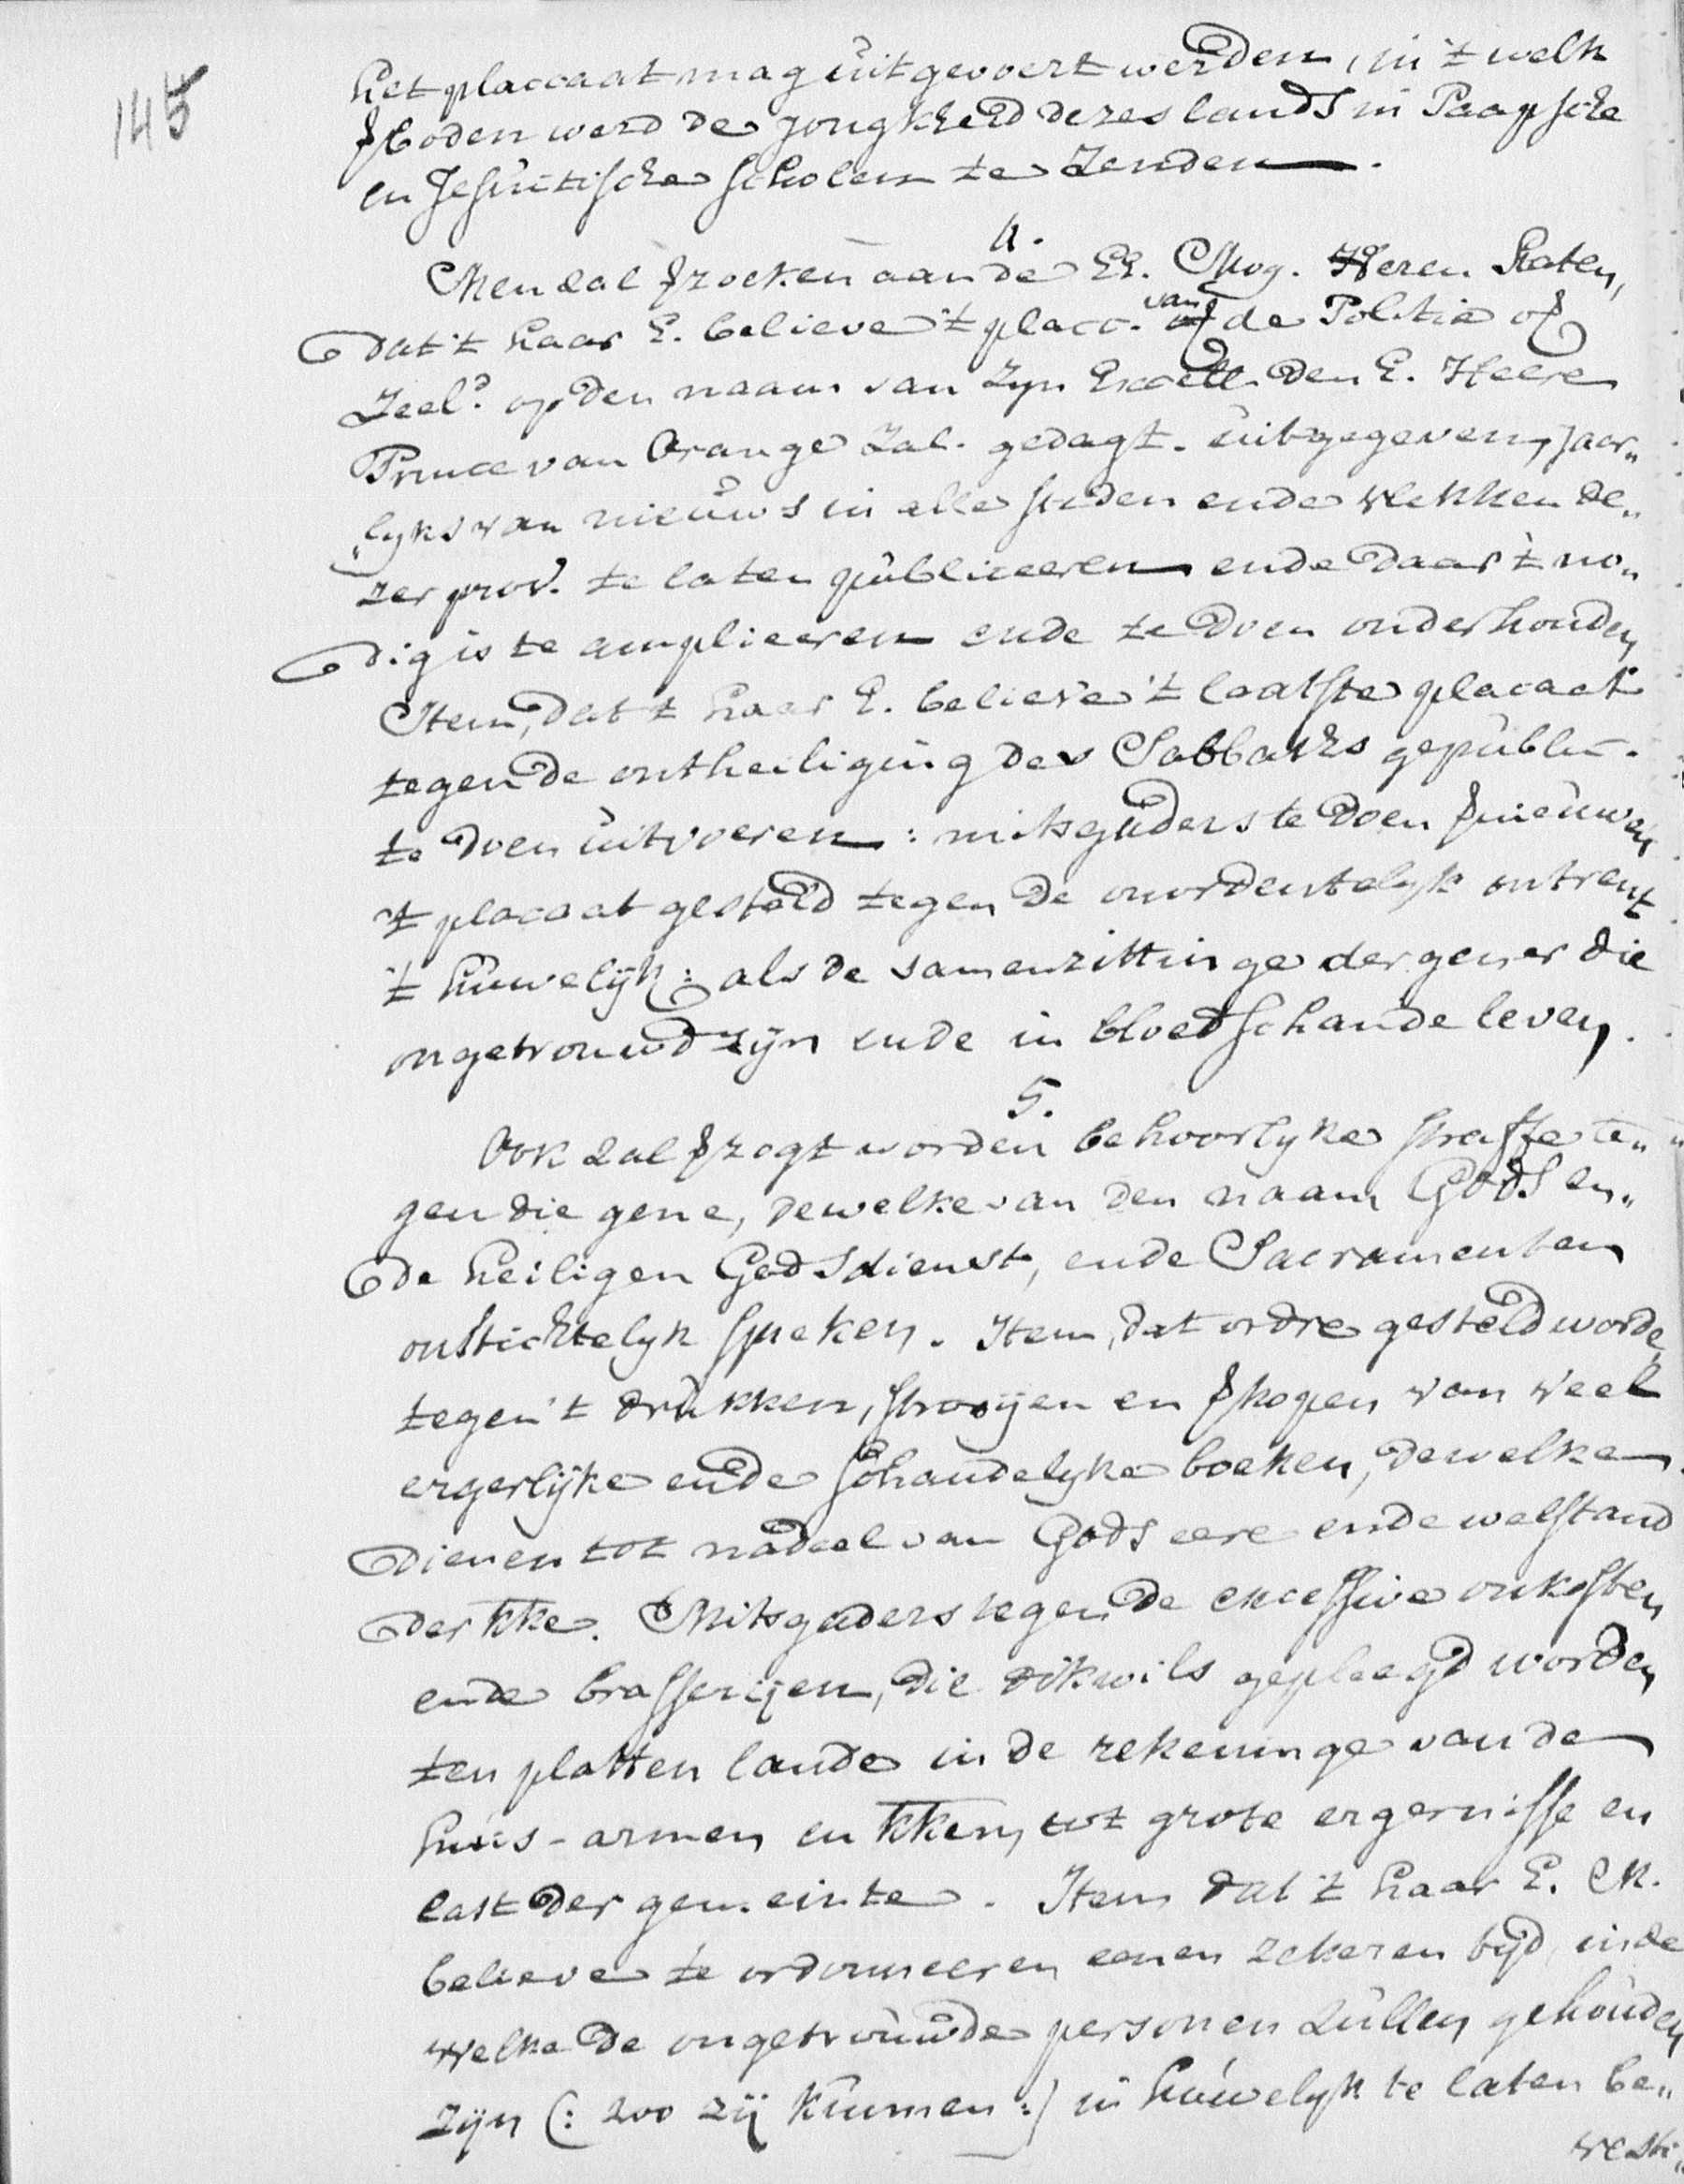 145
het placcaat mag uitgevoert werden, in 't welk
Vboden werd de jongkheid dezes lands in Paapsche
en Jesuitische scholen te zenden.
4.
Men zal Vzoeken aan de EE. Mog. Heren Staten,
dat 't haar E. believe 't placc. van de Politie of
Zeel.d op den naam van zyn Excell. den E. Heere
Prince van Orange zal. gedagt. uitgegeven, jaar„
„lyks van nieuws in alle steden ende vlekken de„
zer prov. te laten publiceeren ende daar 't no„
dig is te amplieeren ende te doen onderhouden
Item, dat 't haar E. believe 't laatste placaat
tegen de ontheiliging des Sabbaths gepubli-
te doen uitvoeren: mitsgaders te doen Vnieuwen
't placaat gesteld tegen de onordentelyk ontrent
't huwelijk: als de samenzittinge dergener die
ongetrouwd zijn ende in bloedschande leven.
5.
Ook zal Vzogt worden behoorlyke straffe te„
gen die gene, dewelke van den naam Gods en„
de heiligen Godsdienst, ende Sacramenten
onstichtelyk spreken. Item, dat ordre gesteld worde
tegen 't drukken, strooijen en Vkopen van veel
ergerlijke ende schandelyke boeken, dewelke
dienen tot nadeel van Gods eere ende welstand
der kke. Mitsgaders tegen de excessive onkosten
ende brasserijen, die dikwils gepleegd worden
ten platten lande in de rekeninge van de
huis-armen en kken, tot grote ergernisse en
last der gemeinte. Item dat 't haar E. M.
believe te ordonneeren eenen zekeren tyd, in de
welke de ongetrouwde personen zullen gehouden
zijn (: zoo zij kunnen :) in huwelyk te laten be„
vesti„